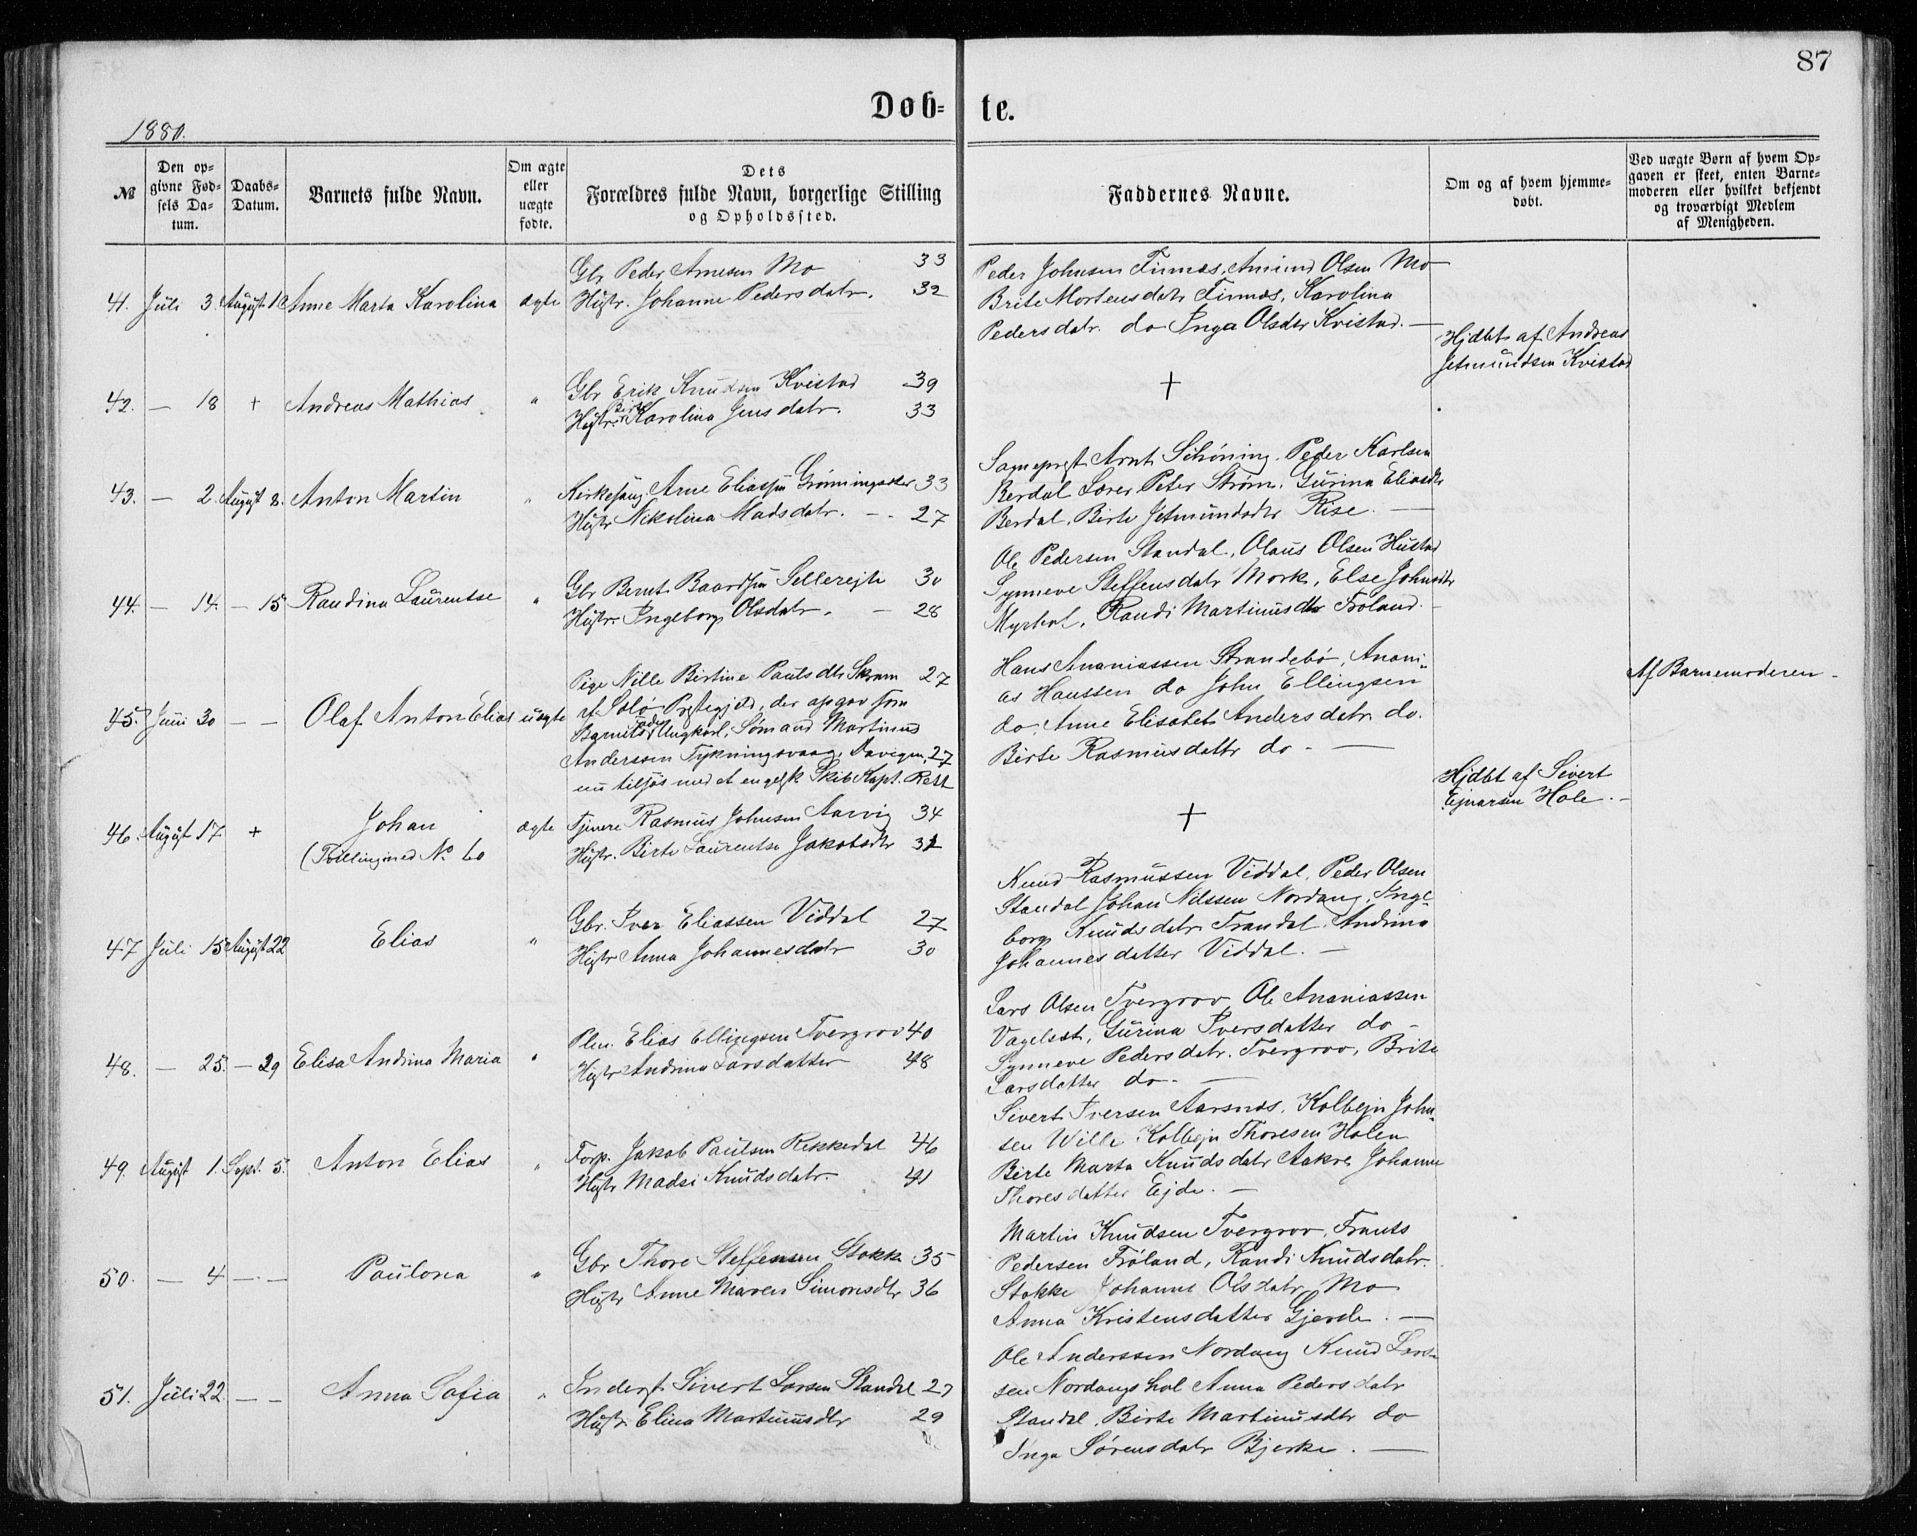 87
Døb- te.
1880.
№
Den op-
givne Fød-
sels Da-
tum.
Daabs-
Datum.
Barnets fulde Navn.
Om ægte
eller
uægte
fødte.
Dets
Forældres fulde Navn, borgerlige Stilling
og Opholdssted.
Faddernes Navne.
Om og af hvem hjemme-
døbt.
Ved uægte Børn af hvem Op-
gaven er skeet, enten Barne-
moderen eller hvilket bekjendt
og troværdigt Medlem
af Menigheden.
41. Juli 3. August Anne Marta Karolina ægte
Gbr Peder Arnesen Mo 33
Hustr. Johanne Pedersdatr. 32
Peder Johnsen Finnæs, Amund Olsen Mo
Brite Mortensdatr Finnæs, Karolina
Pedersdatr. do Inga Olsdtr Kvistad. —
42. — 18 + Andreas Mathias "
Gbr Erik Knudsen Kvistad 39
Hustr. Birte Karolina Jensdatr. 33
+
Hjdbt af Andreas
Jetmundsen Kvistad
43. — 2. August 8. Anton Martin "
Kirkesang. Arne Eliassen Grønningsæter 33
Hustr Nikolina Madsdatr. — 27
Sognepræst Arnt Schöning. Peder Karlsen
Berdal Lærer Peter Strøm. Gurina Eliasdtr
Berdal, Birte Jetmundsdtr Rise. —
44. — 14. — 15 Randina Laurentse "
Gbr Bernt Baardsen Sellerejte 30
Hustr. Ingeborg Olsdatr. — 28
Ole Pedersen Standal, Olaus Olsen Hustad
Synneve Steffensdatr Mork, Else Johnsdtr
Myrhol, Randi Martinusdtr Frøland. —
45. Juni 30 — — Olaf Anton Elias uægte
Pige Nille Birtine Paulsdtr Skram 27
af Solø Præstegjeld, der opgav som
Barnefader Ungkarl, Sømand Martinus
Anderssen Tykningsvaag, Aavigen, 27
nu tilsjøs med et engelsk Skib Kapt. Rett
Hans Ananiassen Strandebø, Anani-
as Hanssen do John Ellingsen
do. Anne Elisabet Andersdatr. do.
Birte Rasmusdattr do — —
Af Barnemoderen —
46. August 17. + Johan ægte
(Tvilling med No. 60
Tjenere Rasmus Johnsen Aarvig 34
Hustr. Birte Laurentse Jakobsdtr 32
+
Hjdbt af Sivert
Ejnarsen Hole. —
47 Juli 15 August 22 Elias "
Gbr. Iver Eliassen Viddal 27
Hustr Anna Johannesdatr 30
Knud Rasmussen Viddal, Peder Olsen
Standal Johan Nilssen Nordang, Inge-
borg Knudsdatr Trandal. Andrina
Johannesdatter Viddal. —
48. — 25. — 29 Elisa Andrina Maria "
Plm. Elias Ellingsen Tvergrov 40
Hustr Andrina Larsdatter 48
Lars Olsen Tvergrov Ole Ananiassen
Vagelset, Gurina Iversdatter do —
Synneve Pedersdatr. Tvergrov, Brite
Larsdatter do. —
49. August 1. Sept. 5. Anton Elias "
Forp. Jakob Paulsen Rekkedal 46
Hustr Madsi Knudsdatr. 41
Sivert Iversen Aarsnæs. Kolbejn John-
sen Wille Kolbejn Thoresen Holen
Birte Marta Knudsdatr Aakre, Johanne
Thoresdatter Ejde. —
50. — 4 — — Paulona "
Gbr Thore Steffensen Stokke 35
Hustr Anne Maren Simonsdtr 36
Martin Knudsen Tvergrov, Frants
Pedersen Frøland, Randi Knudsdatr.
Stokke Johanne Olsdatr, Mo
Anna Kristensdatter Gjerde. —
51. Juli 22 — — Anna Sofia "
Inderst Sivert Larsen Standal 27
Hustr. Elina Martinusdtr 29
Ole Anderssen Nordang Knud Lars-
sen Nordangshol Anna Pedersdatr
Standal. Birte Martinusdtr do
Inga Sørensdatr Bjerke. —